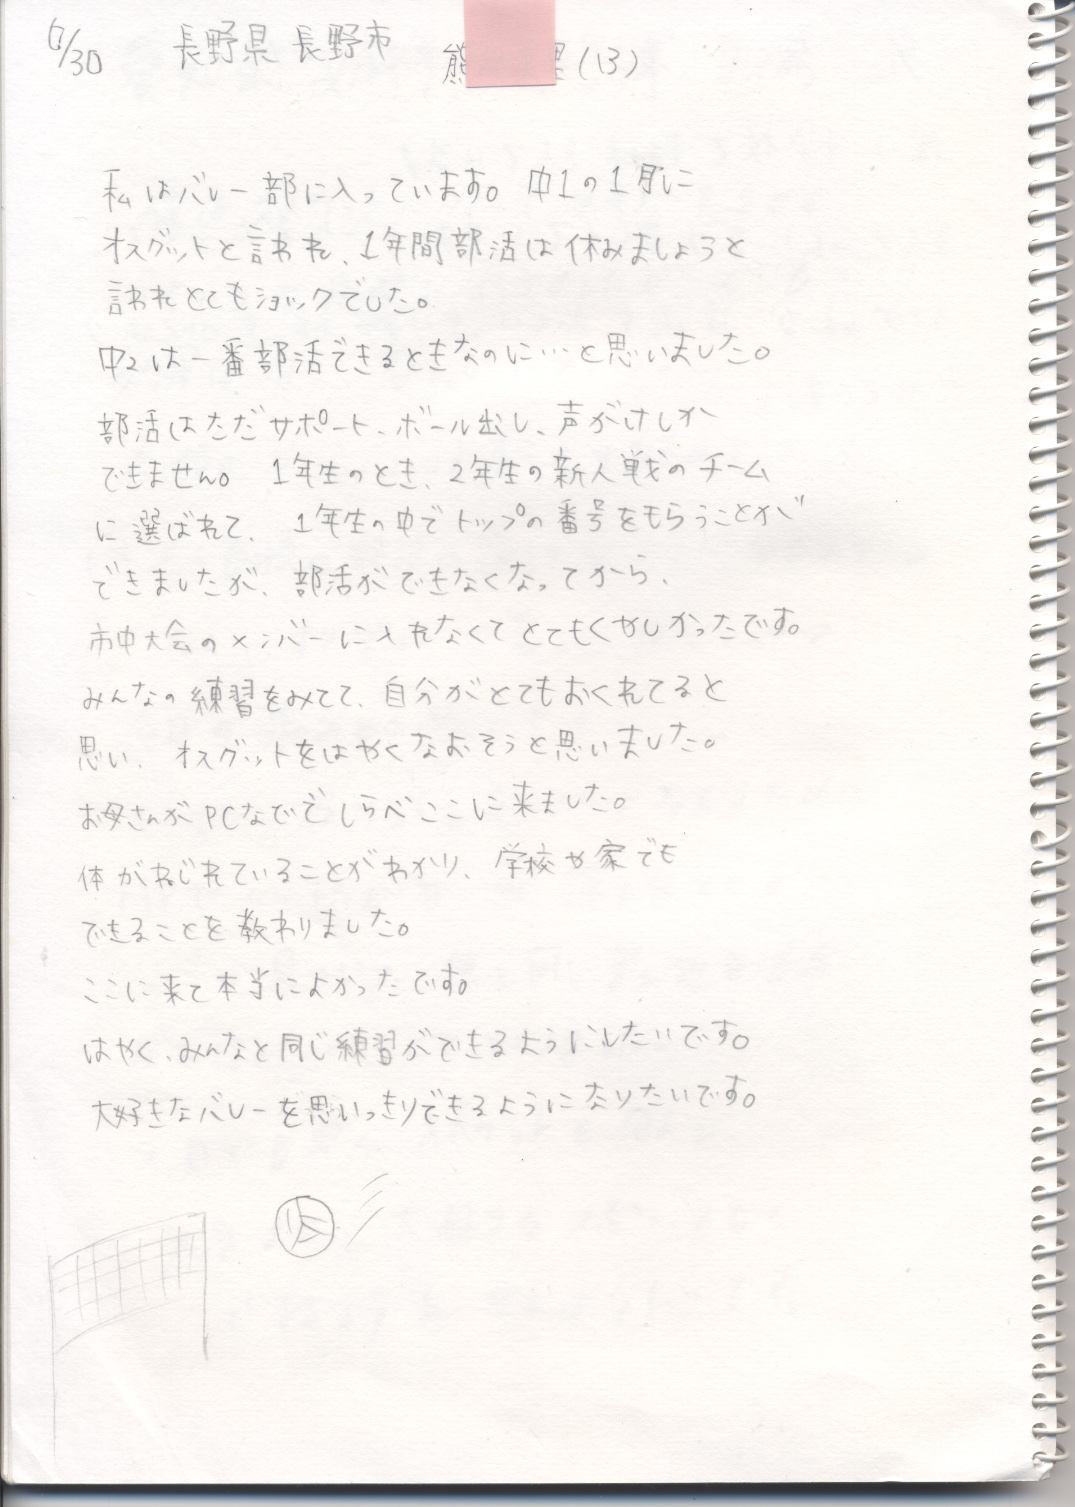 6/30 長野県 長野市 熊 理(13)
私はバレー部に入っています。中1の1月に
オスグットと言われ、1年間部活は休みましょうと
言われとてもショックでした。
中2は一番部活できるときなのに…と思いました。
部活はただサポート、ボール出し、声がけしか
できません。 1年生のとき、2年生の新人戦のチーム
に選ばれて、 1年生の中でトップの番号をもらうことが
できましたが、部活ができなくなってから、
市中大会のメンバーに入れなくてとてもくやしかったです。
みんなの練習をみてて、自分がとてもおくれてると
思い、 オスグットをはやくなおそうと思いました。
お母さんがPCなどでしらべここに来ました。
体がねじれていることがわかり、学校や家でも
できることを教わりました。
ここに来て本当によかったです。
はやく、みんなと同じ練習ができるようにしたいです。
大好きなバレーを思いっきりできるようになりたいです。